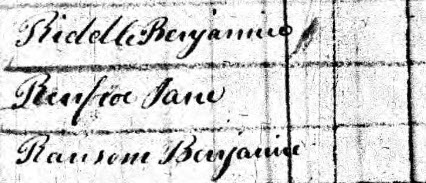 Riddle Benjamin
Renfroe Jane
Ransom Benjamin